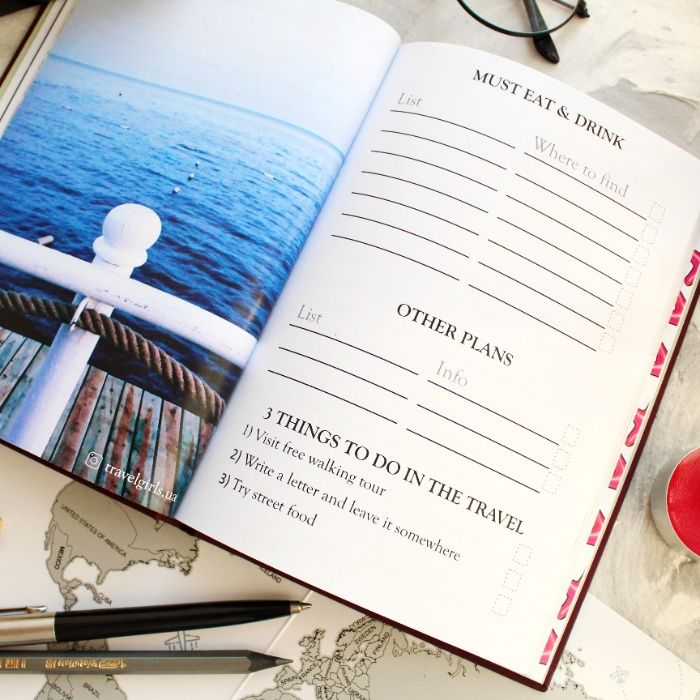 MUST EAT & DRINK
List
Where to find
OTHER PLANS
List
Info
3 THINGS TO DO IN THE TRAVEL
1) Visit free walking tour
2) Write a letter and leave it somewhere
3) Try street food
travelgirls.ua
UNITED STATES OF AMERICA
MEXICO
CUBA
ICELAND
BRAZIL